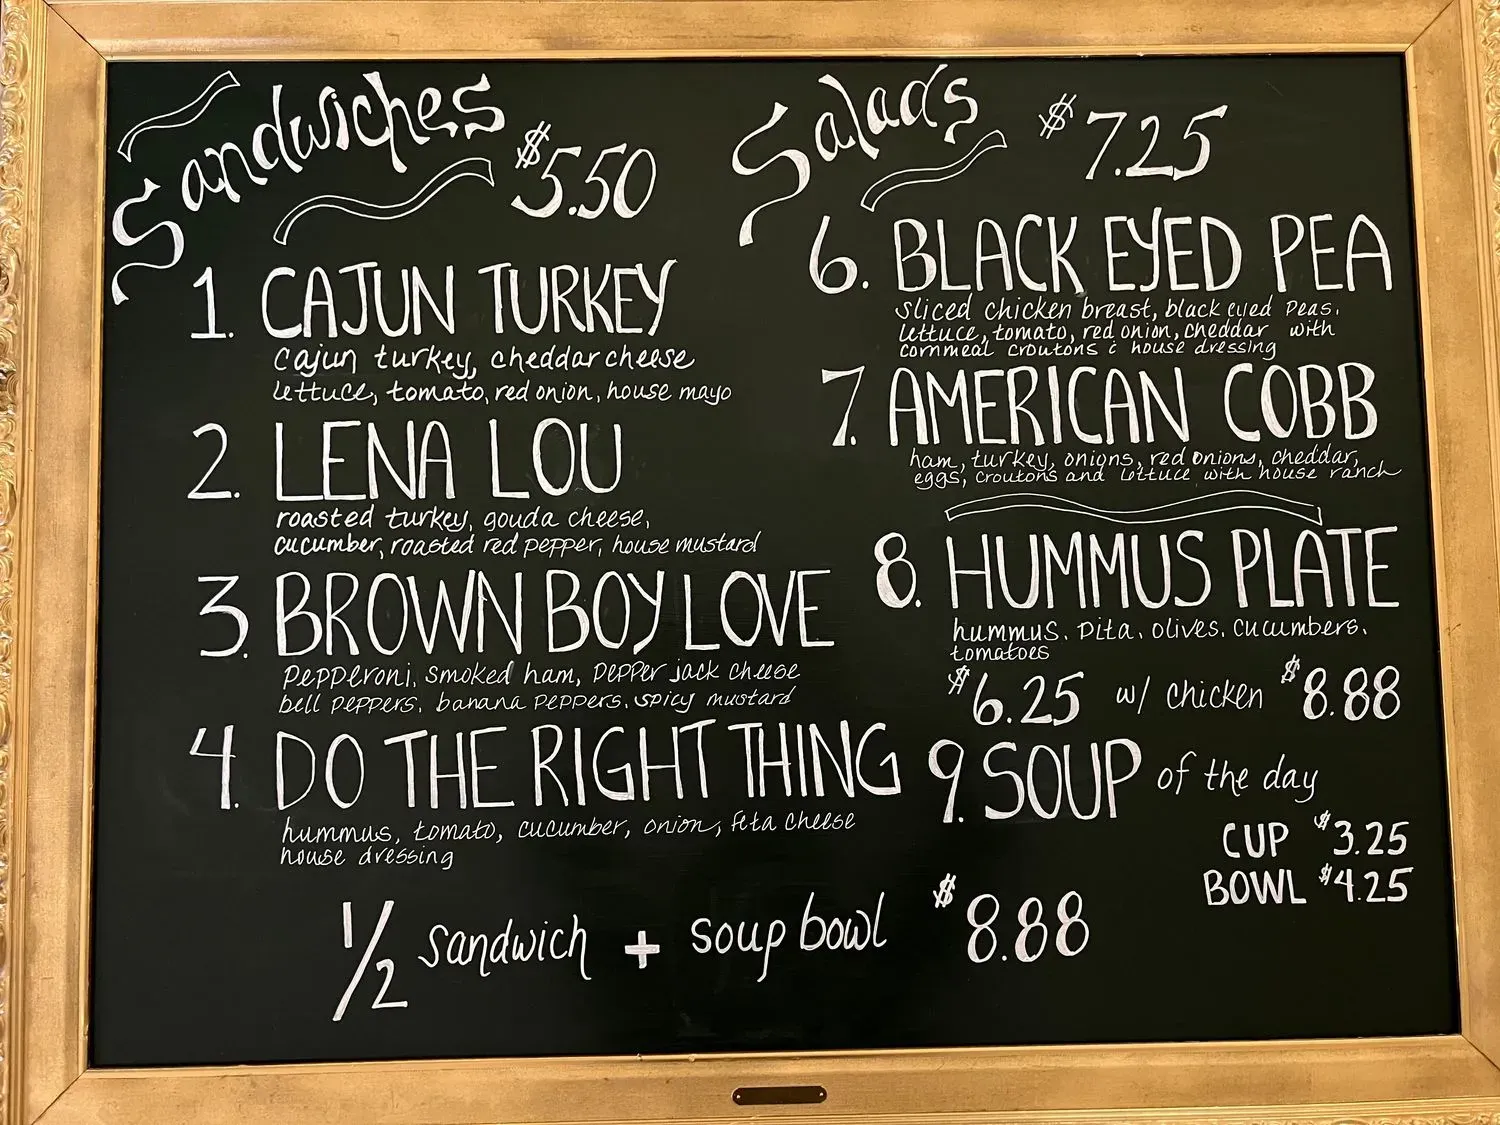 Sandwiches $5.50
1. CAJUN TURKEY
cajun turkey, cheddar cheese
lettuce, tomato, red onion, house mayo
2. LENA LOU
roasted turkey, gouda cheese,
cucumber, roasted red pepper, house mustard
3. BROWN BOY LOVE
pepperoni, smoked ham, pepper jack cheese
bell peppers, banana peppers, spicy mustard
4. DO THE RIGHT THING
hummus, tomato, cucumber, onion, feta cheese
house dressing
Salads $7.25
6. BLACK EYED PEA
sliced chicken breast, black eyed peas,
lettuce, tomato, red onion, cheddar with
cornmeal croutons & house dressing
7. AMERICAN COBB
ham, turkey, onions, red onions, cheddar,
eggs, croutons and lettuce with house ranch
8. HUMMUS PLATE
hummus, pita, olives, cucumbers,
tomatoes
$6.25 w/ chicken $8.88
9. SOUP of the day
CUP $3.25
BOWL $4.25
1/2 sandwich + soup bowl $8.88